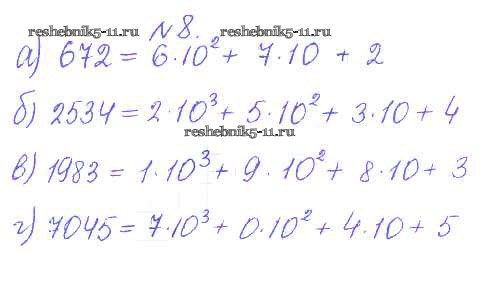 № 8.
reshebnik5-11.ru reshebnik5-11.ru
а) 672 = 6·10² + 7·10 + 2
б) 2534 = 2·10³ + 5·10² + 3·10 + 4
reshebnik5-11.ru
в) 1983 = 1·10³ + 9·10² + 8·10 + 3
г) 7045 = 7·10³ + 0·10² + 4·10 + 5